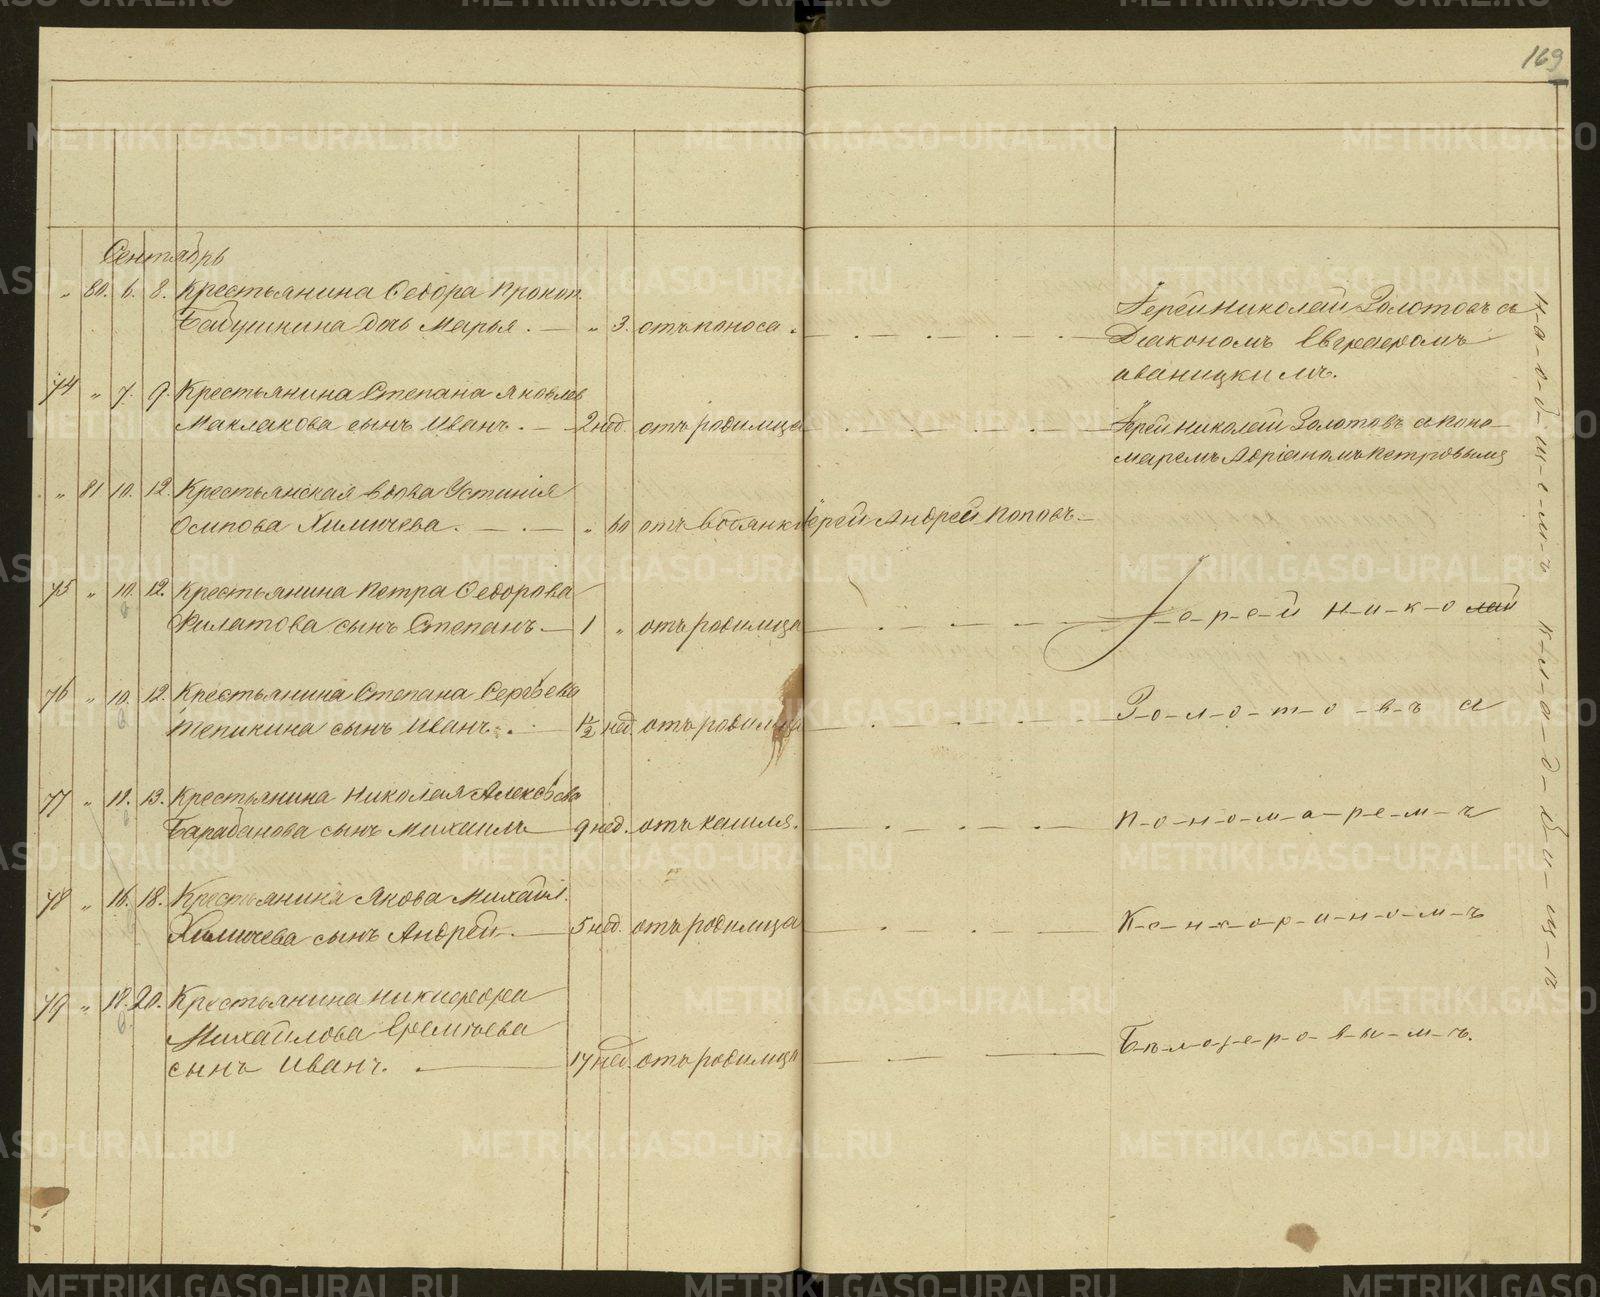 169
Сентябрь
" 80. 6. 8. Крестьянина Ѳедора Прокоп.
Бабушкина дочь Марья. — " 3. отъ поноса.
Іерей Николай Золотовъ съ
Діакономъ Евграфомъ
74 " 7. 9. Крестьянина Степана Яковлев
Маклакова сынъ Иванъ. — 2 нед. отъ родимца
Іерей Николай Золотовъ с поно-
маремъ Адріаномъ Петровымъ
" 81 10. 12. Крестьянская вдова Устинія
Осипова Химичева. — " 60 отъ водянки Іерей Андрей Поповъ —
75 " 10. 12. Крестьянина Петра Ѳедорова
Филатова сынъ Степанъ — 1 " отъ родимца
І-е-р-е-й Н-и-к-о-лай
76 " 10. 12. Крестьянина Степана Сергѣева
Тепикина сынъ Иванъ. 1½ нед. отъ родимца
З-о-л-о-т-о-в-ъ с
77 " 11. 13. Крестьянина Николая Алексѣева
Барабанова сынъ Михаилъ 9 нед. отъ кашля.
п-о-н-о-м-а-р-е-м-ъ
78 " 16. 18. Крестьянина Якова Михайл.
Химичева сынъ Андрей. — 5 нед. отъ родимца
К-е-н-с-о-р-и-н-о-м-ъ
79 " 18. 20. Крестьянина Никифора
Михайлова Еремѣева
сынъ Иванъ. — 17 нед. отъ родимца
Б-ѣ-л-о-з-е-р-о-в-ы-м-ъ.
Н-а-о-б-щ-е-м-ъ к-л-а-д-б-и-щ-ѣ
METRIKI.GASO-URAL.RU